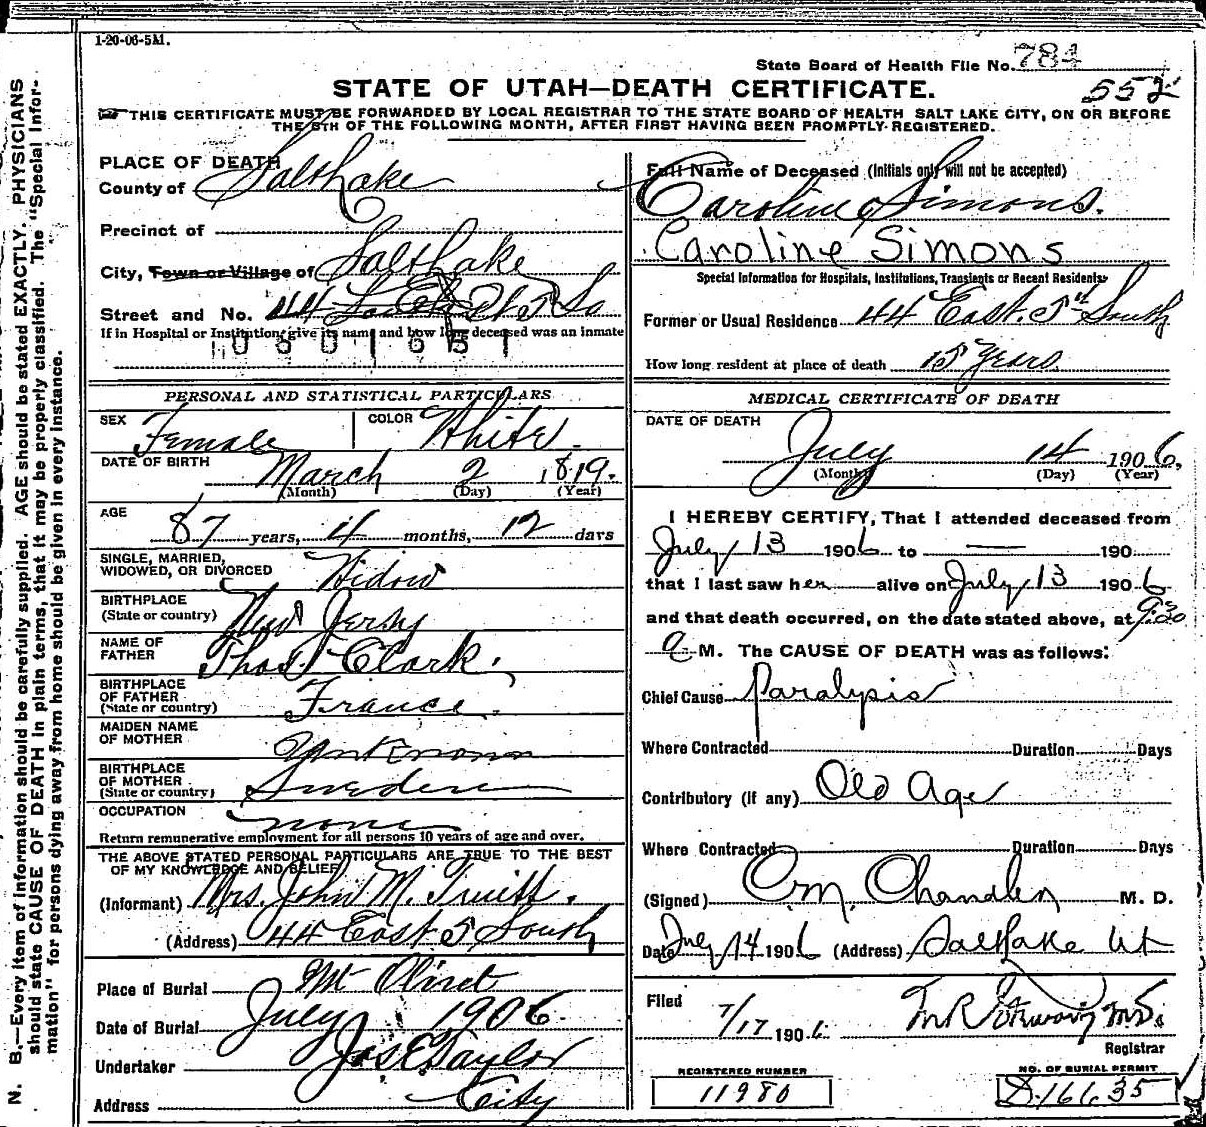 1-20-06-5M.
State Board of Health File No. 784
STATE OF UTAH—DEATH CERTIFICATE. 552
THIS CERTIFICATE MUST BE FORWARDED BY LOCAL REGISTRAR TO THE STATE BOARD OF HEALTH SALT LAKE CITY, ON OR BEFORE
THE 5TH OF THE FOLLOWING MONTH, AFTER FIRST HAVING BEEN PROMPTLY REGISTERED.
PLACE OF DEATH
County of Salt Lake
Precinct of
City, Town or Village of Salt Lake
Street and No. 44 So
If in Hospital or Institution, give its name and how long deceased was an inmate
0301651
PERSONAL AND STATISTICAL PARTICULARS
SEX Female COLOR White.
DATE OF BIRTH March 2 1819.
(Month) (Day) (Year)
AGE 87 years, 4 months, 12 days
SINGLE, MARRIED,
WIDOWED, OR DIVORCED Widow
BIRTHPLACE
(State or country) New Jersy
NAME OF
FATHER Thos. Clark.
BIRTHPLACE
OF FATHER
(State or country) France.
MAIDEN NAME
OF MOTHER Unknown
BIRTHPLACE
OF MOTHER
(State or country) Sweden
OCCUPATION none
Return remunerative employment for all persons 10 years of age and over.
THE ABOVE STATED PERSONAL PARTICULARS ARE TRUE TO THE BEST
OF MY KNOWLEDGE AND BELIEF
(Informant) Mrs. John M. Truitt.
(Address) 44 East 5 South
Place of Burial Mt Olivet
Date of Burial July 1906.
Undertaker Jos E Taylor
Address City
Full Name of Deceased (Initials only will not be accepted)
Caroline Simons.
Caroline Simons
Special Information for Hospitals, Institutions, Transients or Recent Residents:
Former or Usual Residence 44 East. 5th South
How long resident at place of death 15 Years.
MEDICAL CERTIFICATE OF DEATH
DATE OF DEATH
July 14 1906.
(Month) (Day) (Year)
I HEREBY CERTIFY, That I attended deceased from
July 13 1906 to — 190
that I last saw her alive on July 13 1906
and that death occurred, on the date stated above, at 9:30
a M. The CAUSE OF DEATH was as follows:
Chief Cause Paralysis
Where Contracted Duration Days
Contributory (if any) Old Age
Where Contracted Duration Days
(Signed) C.M. Chandler M. D.
Date July 14 1906 (Address) Salt Lake Ut
Filed 7/17 1906 M.D.
Registrar
REGISTERED NUMBER
11980
NO. OF BURIAL PERMIT
D.16635
N. B.—Every item of information should be carefully supplied. AGE should be stated EXACTLY. PHYSICIANS
should state CAUSE OF DEATH in plain terms, that it may be properly classified. The "Special Infor-
mation" for persons dying away from home should be given in every instance.